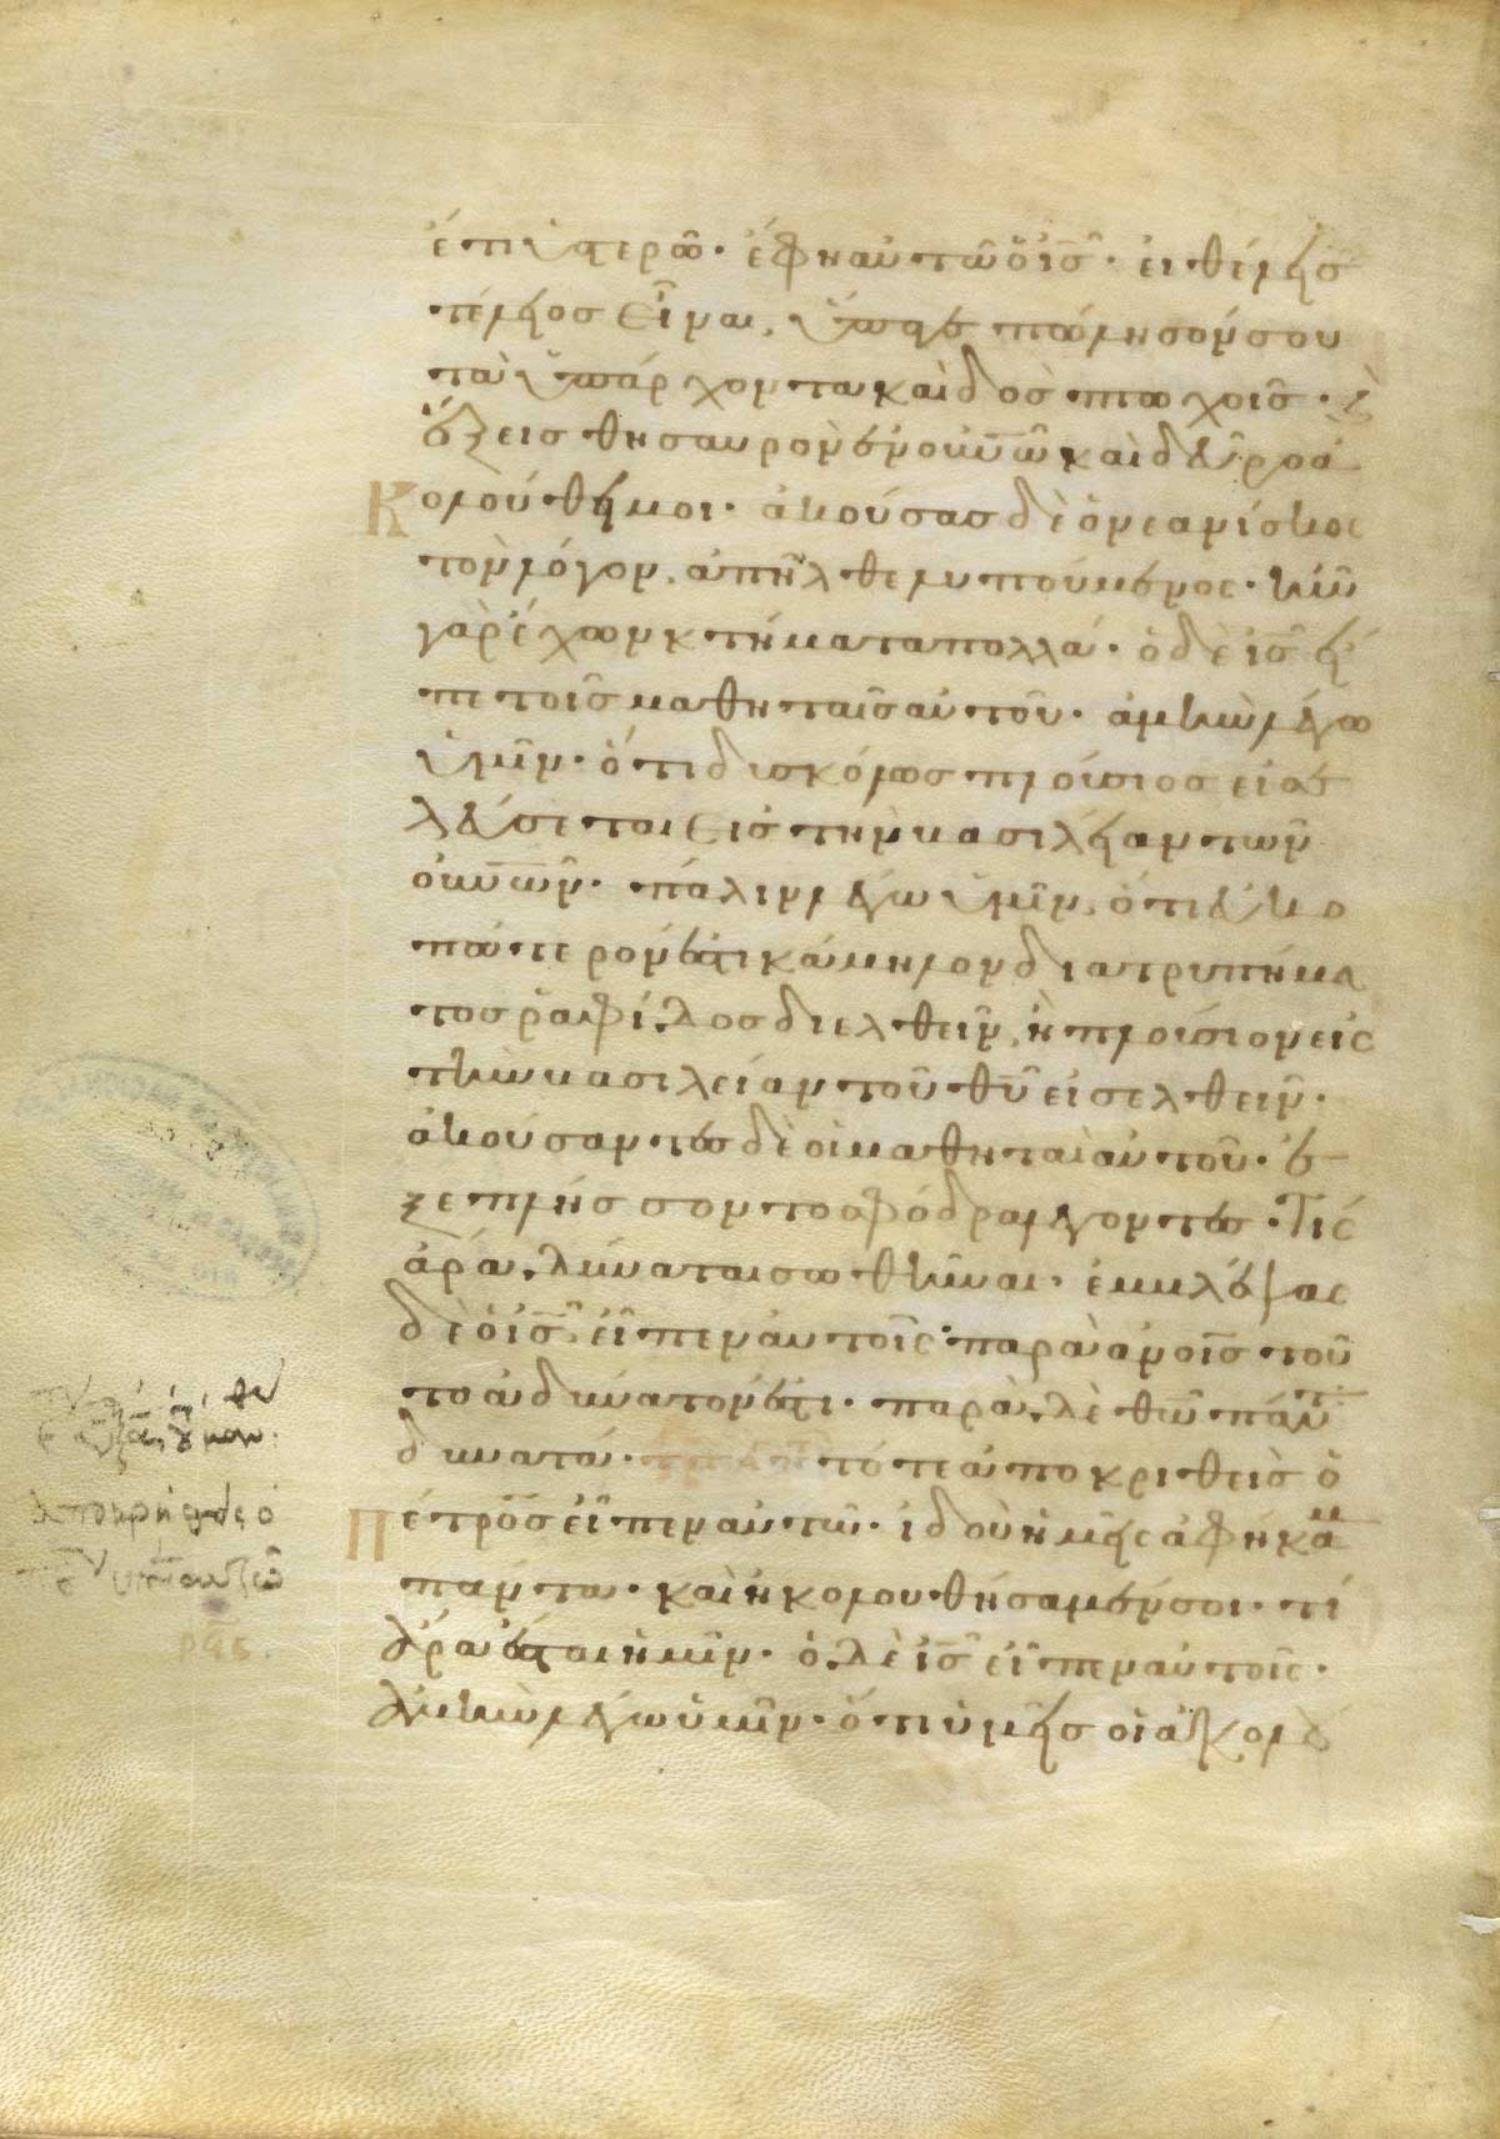 ἔτι ὑστερῶ· ἔφη αὐτῶ ὁ ις̅· εἰ θέλεις
τέλειος εἶναι, ὕπαγε πώλησόν σου
τὰ ὑπάρχοντα καὶ δὸς πτωχοῖς· κ̀
ἕξεις θησαυρὸν ἐν οὐν̅ῶ καὶ δεῦρο ἀ
κολούθει μοι· ἀκούσας δὲ ὁ νεανίσκος
τὸν λόγον, ἀπῆλθε λυπούμενος· ἦν
γὰρ ἔχων κτήματα πολλά· ὁ δὲ ις̅ εἶ
πε τοῖς μαθηταῖς αὐτοῦ· ἀμὴν λέγω
ὑμῖν· ὅτι δυσκόλως πλούσιος εἰσε
λεύσεται εἰς τὴν βασιλείαν τῶν
οὐν̅ῶν· πάλιν λέγω ὑμῖν, ὅτι εὐκο
πώτερόν ἐστι κάμηλον διὰ τρυπήμα
τος ῥαφίδος διελθεῖν, ἢ πλούσιον εἰς
τὴν βασιλείαν τοῦ θυ̅ εἰσελθεῖν·
ἀκούσαντες δὲ οἱ μαθηταὶ αὐτοῦ· ἐ
ξεπλήσσοντο σφόδρα λέγοντες· Τίς
ἄρα δύναται σωθῆναι· ἐμβλέψας
δὲ ὁ ις̅ εἶπεν αὐτοῖς· παρὰ ἀνοις̅ τοῦ
το ἀδύνατόν ἐστι· παρὰ δὲ θω̅ πάντ
δυνατά· τότε ἀποκριθεὶς ὁ
Πέτρος εἶπεν αὐτῶ· ἰδοὺ ἡμεῖς ἀφήκαμ
πάντα· καὶ ἠκολουθήσαμέν σοι· τί
ἄρα ἔσται ἡμῖν· ὁ δὲ ις̅ εἶπεν αὐτοῖς·
ἀμὴν λέγω ὑμῖν· ὅτι ὑμεῖς οἱ ἀκολου